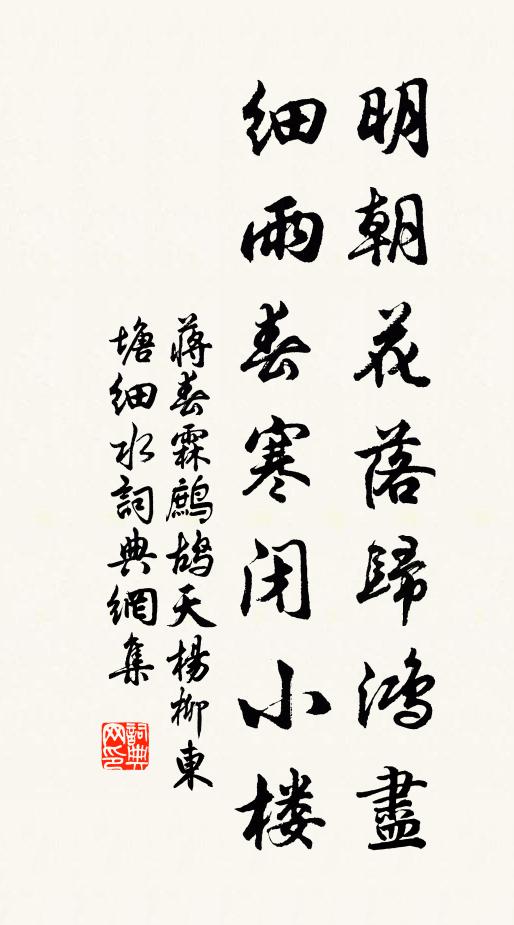 明朝花落歸鴻盡
細雨春寒閉小楼
蔣春霖鷓鴣天楊柳東
塘細水詞典網集
詞典网印